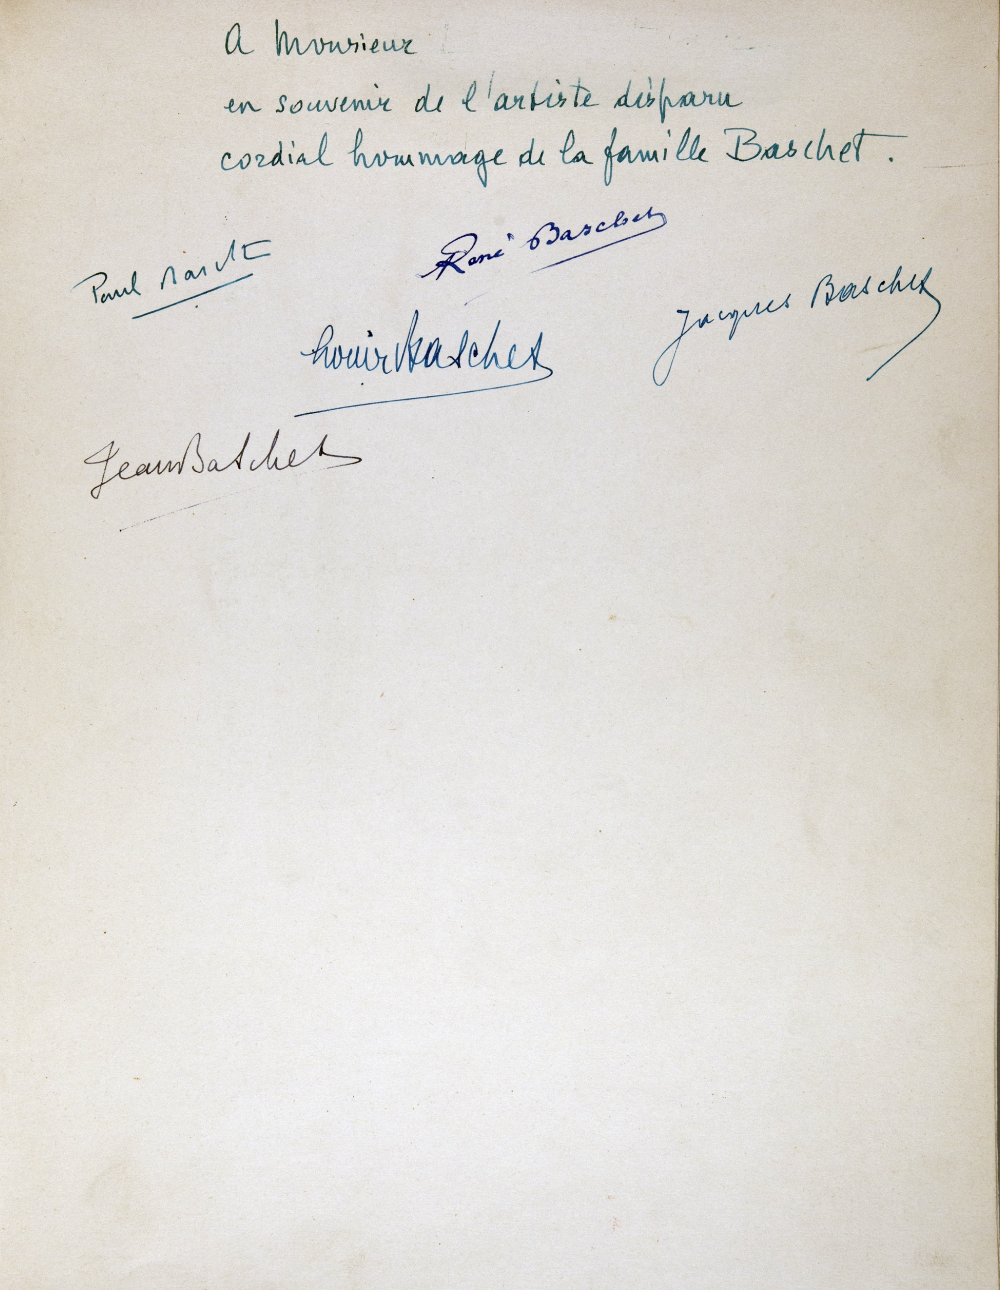 A Monsieur
en souvenir de l'artiste disparu
cordial hommage de la famille Baschet.
René Baschet
Paul Baschet
Jacques Baschet
Louis Baschet
Jean Baschet